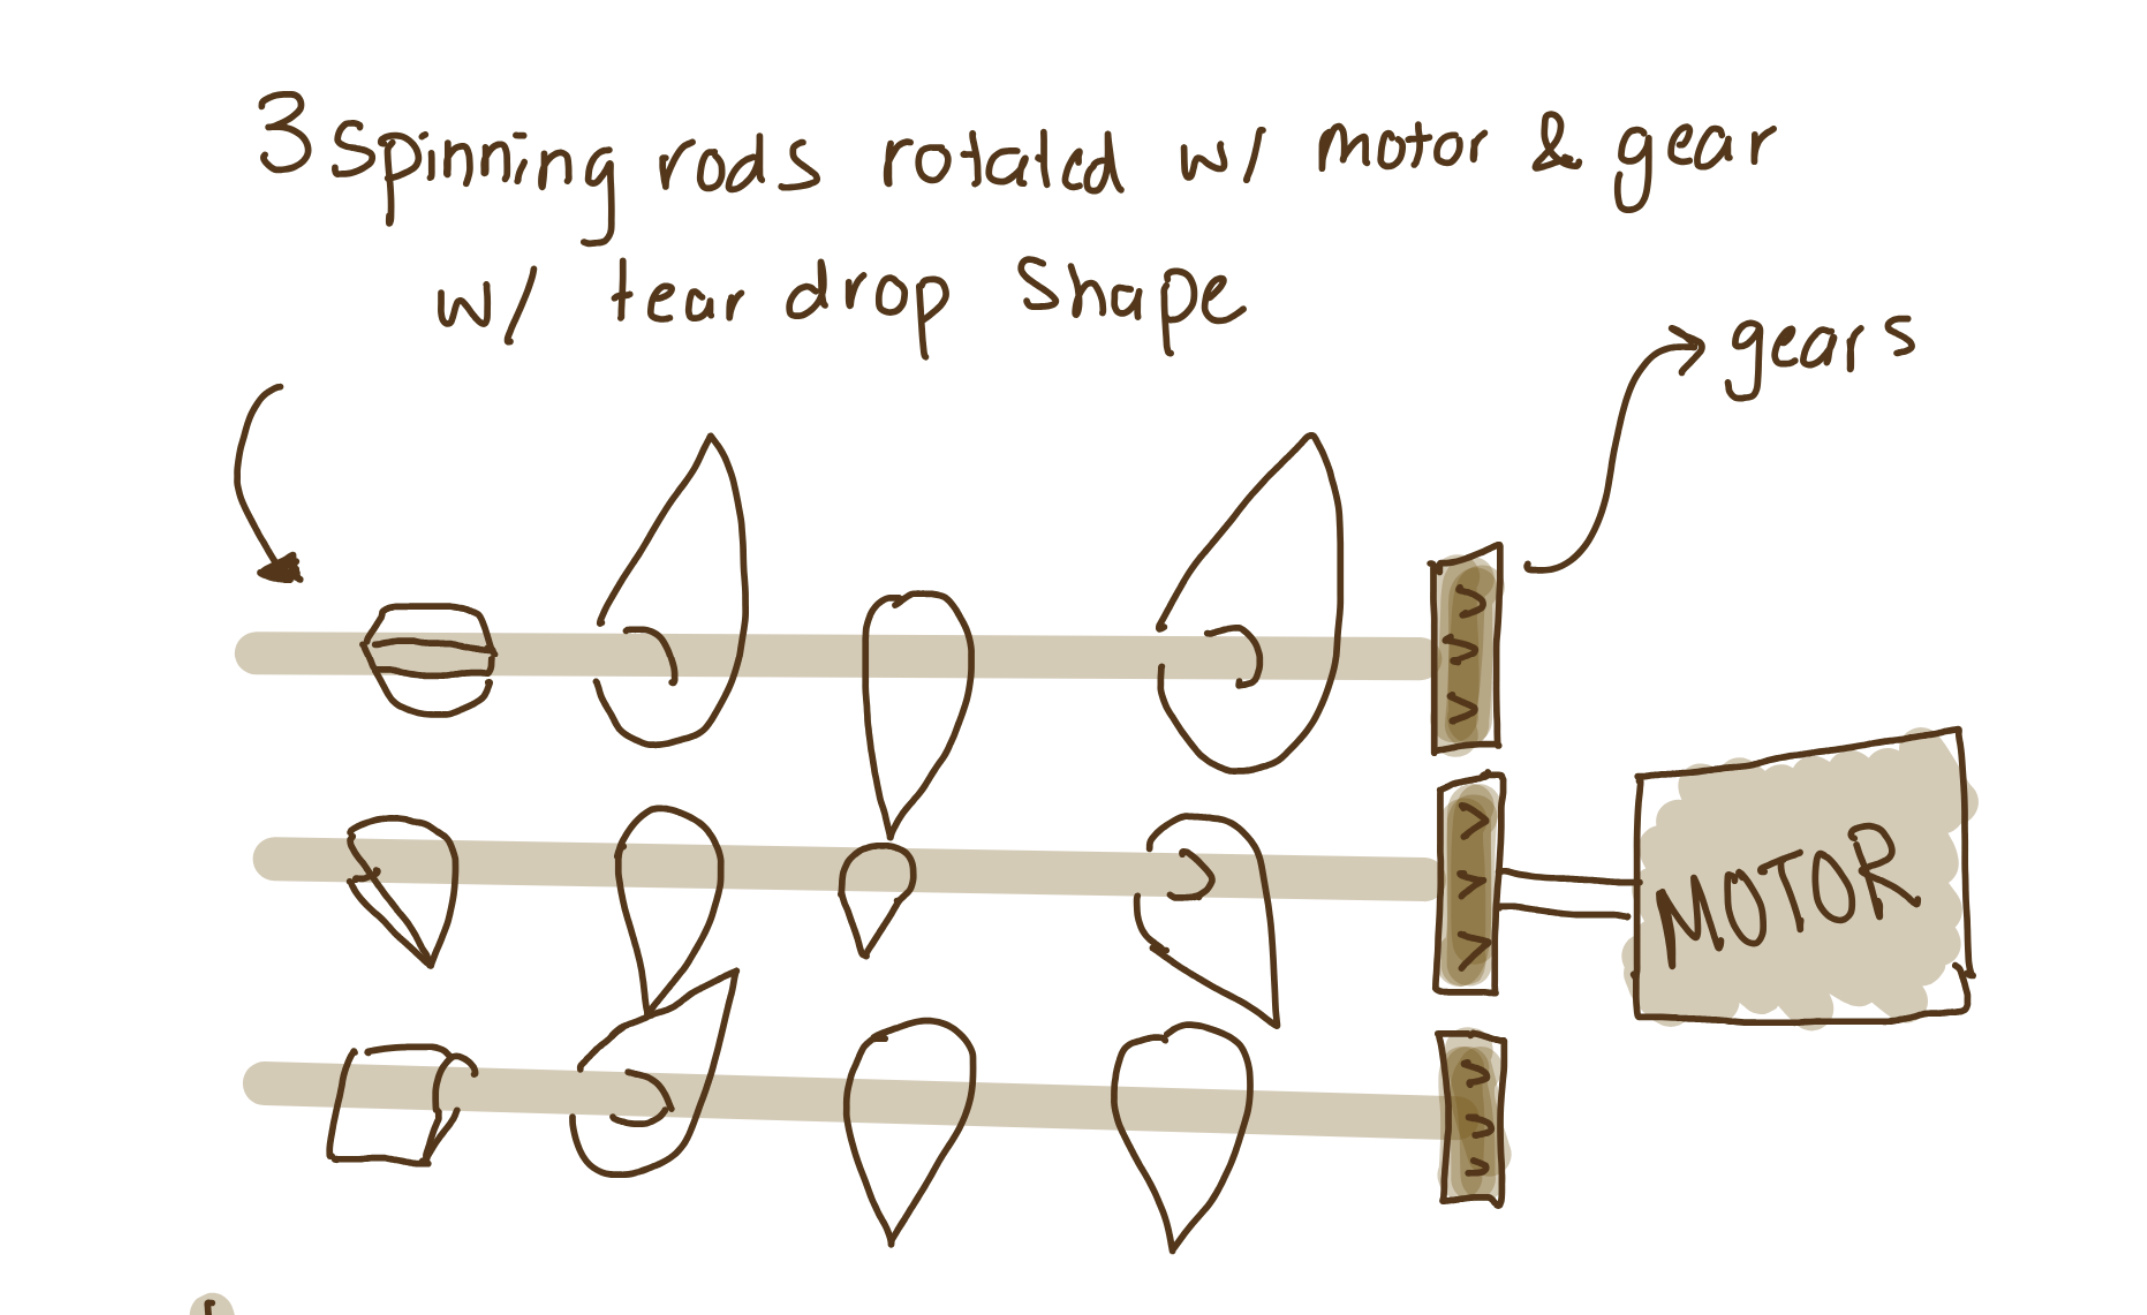 3 spinning rods rotated w/ motor & gear
w/ tear drop shape
gears
MOTOR